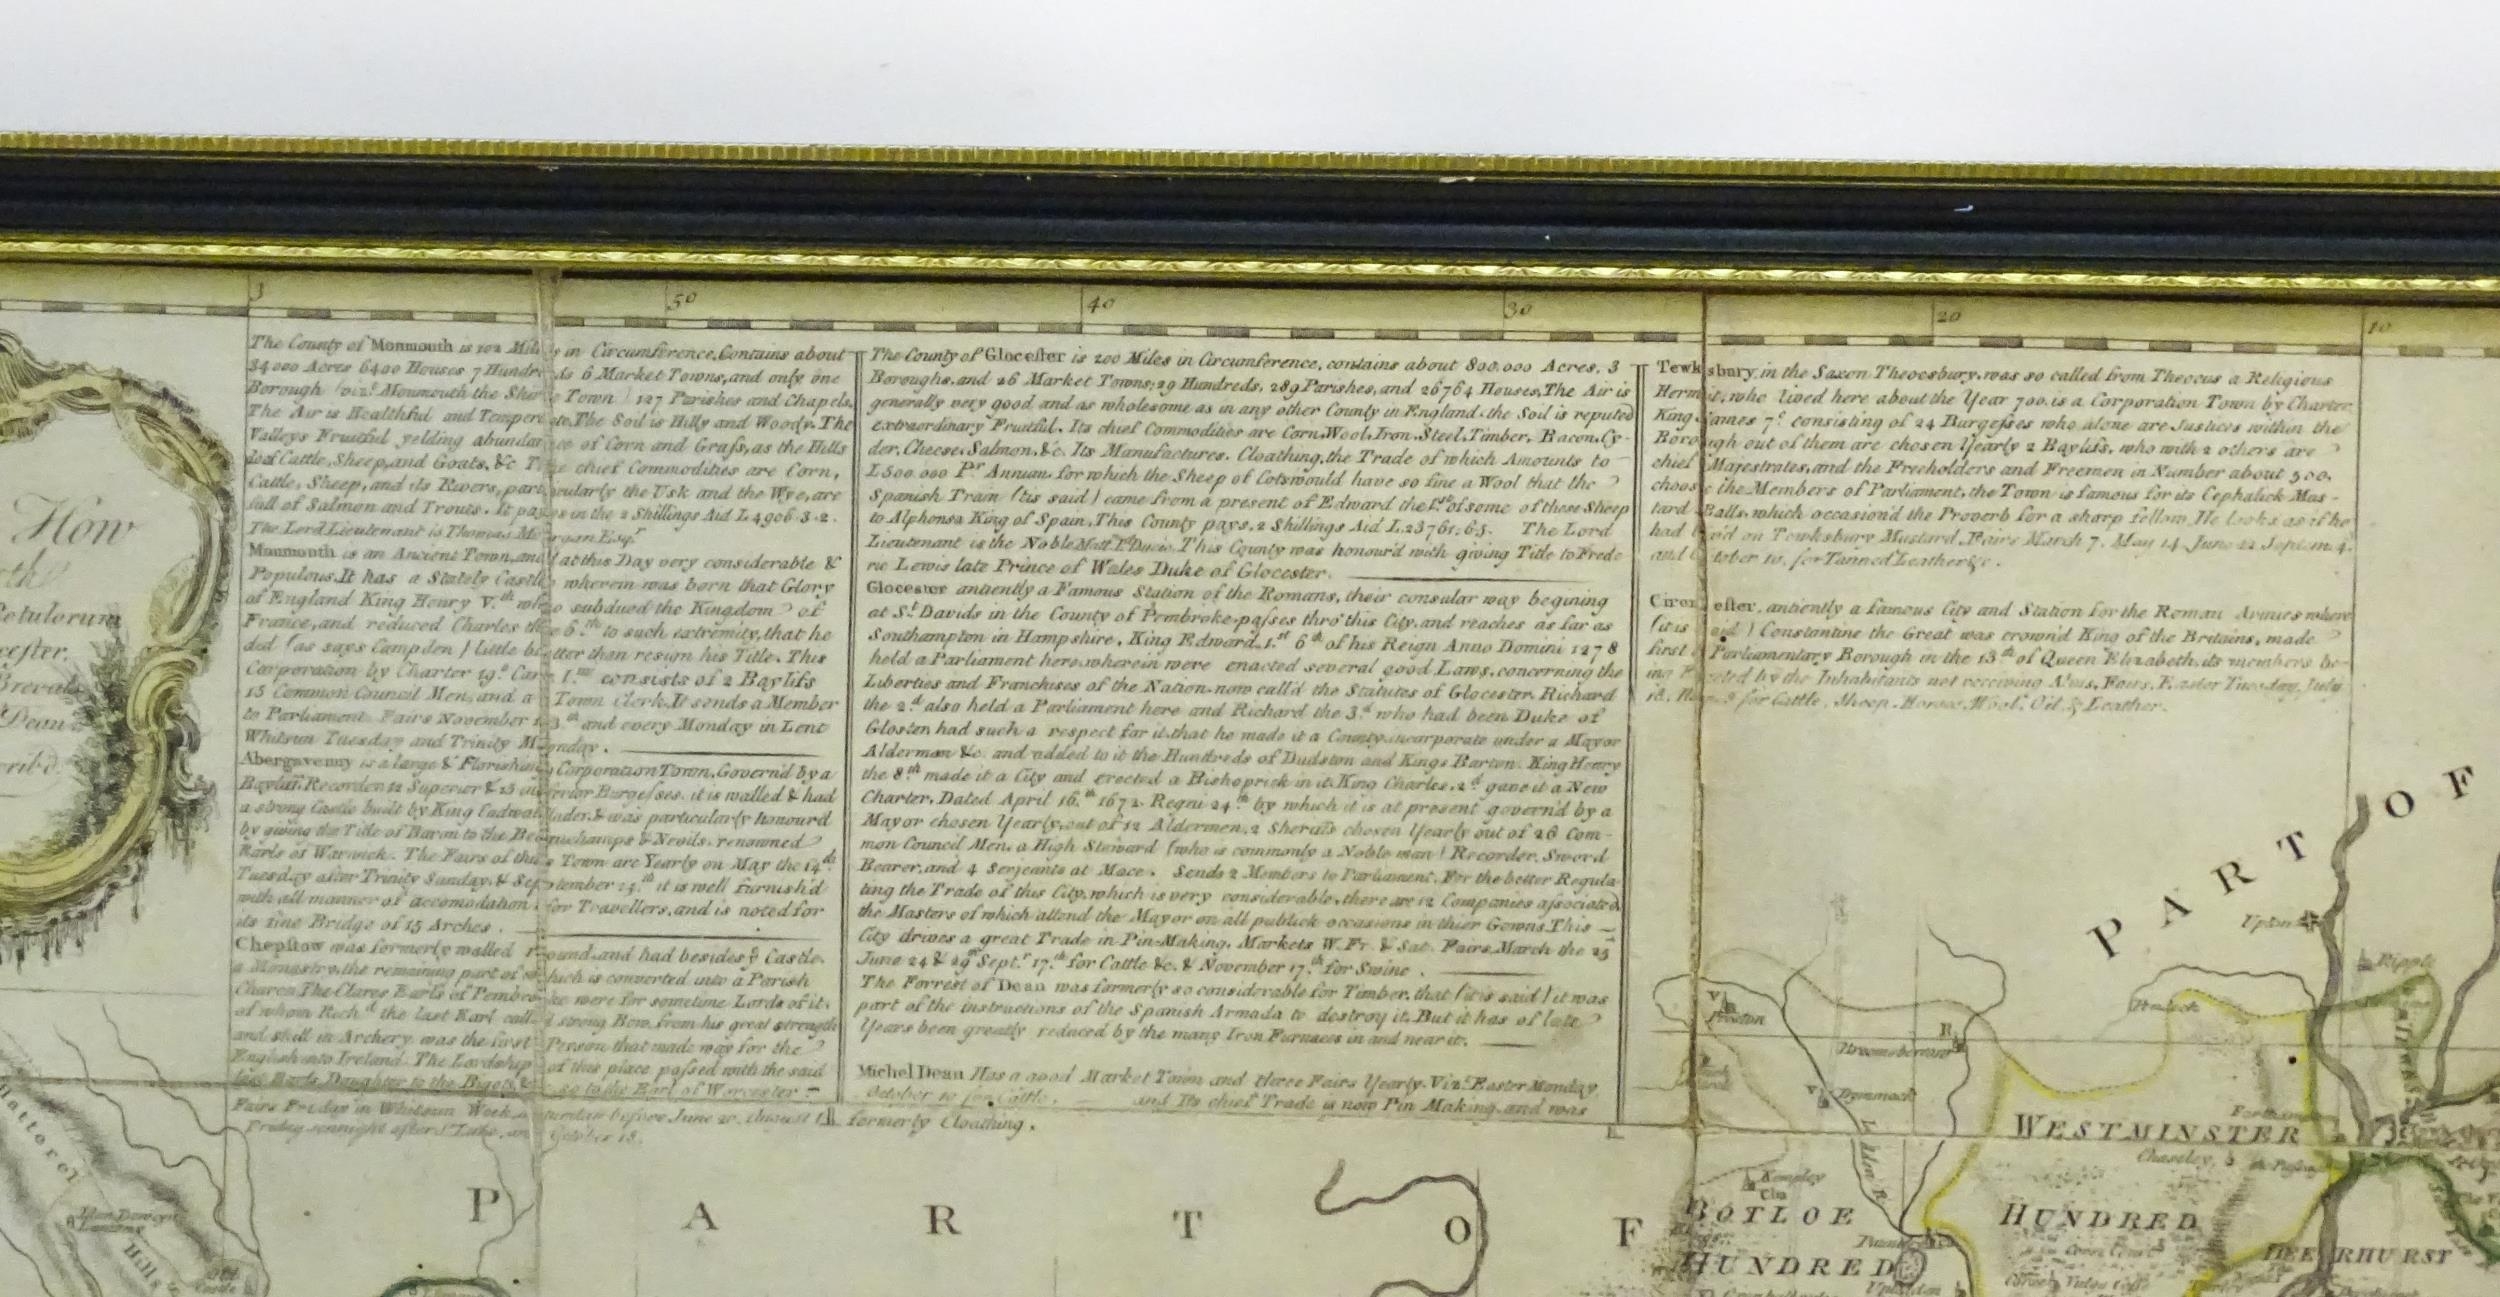 3
50
40
30
20
10
The County of Monmouth is 102 Miles in Circumference, Contains about
34000 Acres 6400 Houses 7 Hundreds 6 Market Towns, and only one
Borough (viz.t Monmouth the Shire Town) 127 Parishes and Chapels.
The Air is Healthful and Temperate. The Soil is Hilly and Woody. The
Valleys Fruitful yelding abundance of Corn and Grass, as the Hills
do of Cattle, Sheep, and Goats, &c The chief Commodities are Corn,
Cattle, Sheep, and its Rivers, particularly the Usk and the Wye, are
full of Salmon and Trouts. It pays in the 2 Shillings Aid L 4906.3.2.
The Lord Lieutenant is Thomas Morgan Esq.r
Monmouth is an Ancient Town, and at this Day very considerable &
Populous. It has a Stately Castle wherein was born that Glory
of England King Henry V.th who subdued the Kingdom of
France, and reduced Charles the 6.th to such extremity, that he
did (as says Campden) little better than resign his Title. This
Corporation by Charter 19.o Car: 1.mi consists of 2 Baylifs
15 Common Council Men, and a Town Clerk. It sends a Member
to Parliament. Fairs November 13th and every Monday in Lent
Whitsun Tuesday and Trinity Monday.
Abergavenny is a large & Florishing Corporation Town, Govern'd by a
Bayliff, Recorder 12 Superior & 15 inferior Burgesses. it is walled & had
a strong Castle built by King Cadwallader, & was particularly honour'd
by giving the Title of Baron to the Beauchamps & Nevils, renowned
Earls of Warwick. The Fairs of this Town are Yearly on May the 14.th
Tuesday after Trinity Sunday, & September 14.th it is well Furnish'd
with all manner of accomodation for Travellers, and is noted for
its fine Bridge of 15 Arches.
Chepstow was formerly walled round, and had besides ye Castle,
a Monastry, the remaining part of which is converted into a Parish
Church The Clares Earls of Pembroke were for sometime Lords of it,
of whom Rich.d the last Earl call'd strong Bow, from his great strength
and skill in Archery was the first Person that made way for the
English into Ireland. The Lordship of this place passed with the said
last Earls Daughter to the Bigots, & so to the Earl of Worcester
Fairs Friday in Whitsun Week, Saturday before June 20, August 1
Friday sennight after St. Luke, October 18.
The County of Glocester is 200 Miles in Circumference, contains about 800,000 Acres, 3
Boroughs, and 26 Market Towns; 29 Hundreds, 289 Parishes, and 26764 Houses, The Air is
generally very good and as wholesome as in any other County in England, the Soil is reputed
extraordinary Fruitful. Its chief Commodities are Corn, Wool, Iron, Steel, Timber, Bacon, Cy-
der, Cheese, Salmon, &c. Its Manufactures, Cloathing, the Trade of which Amounts to
L500.000 Pr Annum, for which the Sheep of Cotswould have so fine a Wool that the
Spanish Train (tis said) came from a present of Edward the 1.st of some of these Sheep
to Alphonsa King of Spain. This County pays, 2 Shillings Aid L.23761.6.5. The Lord
Lieutenant is the Noble Matt. Ld Ducie. This County was honour'd with giving Title to Frede
ric Lewis late Prince of Wales Duke of Glocester.
Glocester antiently a Famous Station of the Romans, their consular way begining
at S.t Davids in the County of Pembroke, passes thro' this City, and reaches as far as
Southampton in Hampshire. King Edward 1.st 6th of his Reign Anno Domini 1278
held a Parliament here, wherein were enacted several good Laws, concerning the
Liberties and Franchises of the Nation, now call'd the Statutes of Glocester. Richard
the 2.d also held a Parliament here and Richard the 3.d who had been Duke of
Gloster, had such a respect for it, that he made it a County incorporate under a Mayor
Alderman &c. and added to it the Hundreds of Dudston and Kings Barton. King Henry
the 8th made it a City and erected a Bishoprick in it. King Charles, 2.d gave it a New
Charter, Dated April 16.th 1672. Regni 24.th by which it is at present govern'd by a
Mayor chosen Yearly, out of 12 Aldermen, 2 Sherifs chosen Yearly out of 26 Com-
mon Council Men, a High Steward (who is commonly a Noble man) Recorder, Sword
Bearer, and 4 Serjeants at Mace. Sends 2 Members to Parliament. For the better Regula-
ting the Trade of this City, which is very considerable, there are 12 Companies associated,
the Masters of which attend the Mayor on all publick occasions in thier Gowns. This
City drives a great Trade in Pin-Making. Markets W. Fr. & Sat. Fairs, March the 25
June 24 & 29 Sept.r 17.th for Cattle &c. & November 17.th for Swine.
The Forrest of Dean was formerly so considerable for Timber, that (it is said) it was
part of the instructions of the Spanish Armada to destroy it. But it has of late
Years been greatly reduced by the many Iron Furnaces in and near it.
Michel Dean Has a good Market Town and three Fairs Yearly. Viz.t Easter Monday
October 10 for Cattle, and Its chief Trade is now Pin Making, and was
formerly Cloathing.
Tewksbury, in the Saxon Theocsbury, was so called from Theocus a Religious
Hermit, who lived here about the Year 700. is a Corporation Town by Charter
King James 7.o consisting of 24 Burgesses who alone are Justices within the
Borough out of them are chosen Yearly 2 Baylifs, who with 2 others are
chief Majestrates, and the Freeholders and Freemen in Number about 500,
choose the Members of Parliament, the Town is famous for its Cephalick Mus-
tard Balls, which occasion'd the Proverb for a sharp fellow, He looks as if he
had liv'd on Tewksbury Mustard, Fairs March 7. May 14. June 22 Septem. 4.
and October 10. for Tanned Leather &c.
Cirencester, antiently a famous City and Station for the Roman Armies where
(it is said) Constantine the Great was crown'd King of the Britains, made
first a Parliamentary Borough in the 13th of Queen Elizabeth, its members be-
ing Elected by the Inhabitants not receiving Alms, Fairs, Easter Tuesday, July
for Cattle, Sheep, Horses, Wool, Oil, & Leather.
How
Dean
PART OF
PART OF
Upton
Ripple
Preton
Bromsberrow
Dymmock
WESTMINSTER
Chaseley
Kempley
BOTLOE
HUNDRED
HUNDRED
DEERHURST
Old Castle
Hatterel
Hills